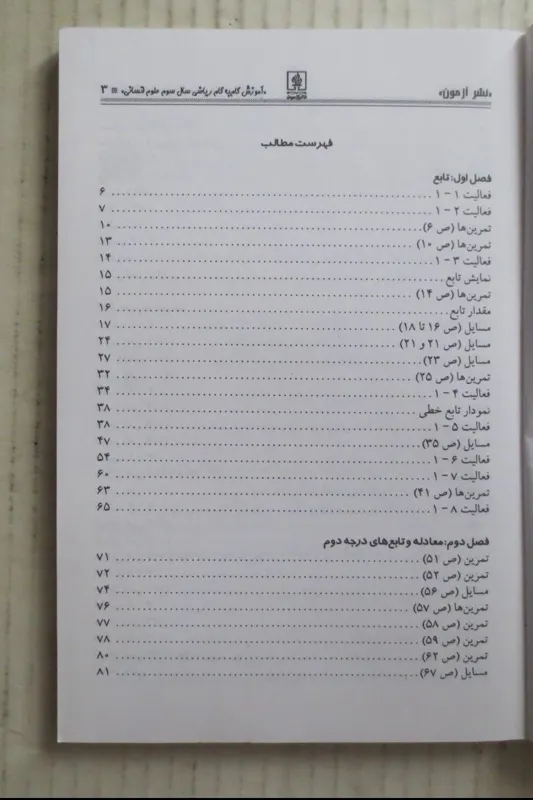 «نشر آزمون» «آموزش گام‌به گام ریاضی سال سوم علوم انسانی» ■ ۳
فهرست مطالب
فصل اول: تابع
فعالیت ۱ – ۱ ........ ۶
فعالیت ۲ – ۱ ........ ۷
تمرین‌ها (ص ۶) ........ ۱۰
تمرین‌ها (ص ۱۰) ........ ۱۳
فعالیت ۳ – ۱ ........ ۱۴
نمایش تابع ........ ۱۵
تمرین‌ها (ص ۱۴) ........ ۱۵
مقدار تابع ........ ۱۶
مسایل (ص ۱۶ تا ۱۸) ........ ۱۷
مسایل (ص ۲۱ و ۲۱) ........ ۲۴
مسایل (ص ۲۳) ........ ۲۷
تمرین‌ها (ص ۲۵) ........ ۳۲
فعالیت ۴ – ۱ ........ ۳۴
نمودار تابع خطی ........ ۳۸
فعالیت ۵ – ۱ ........ ۳۸
مسایل (ص ۳۵) ........ ۴۷
فعالیت ۶ – ۱ ........ ۵۴
فعالیت ۷ – ۱ ........ ۶۰
تمرین‌ها (ص ۴۱) ........ ۶۳
فعالیت ۸ – ۱ ........ ۶۵
فصل دوم: معادله و تابع‌های درجه دوم
تمرین (ص ۵۱) ........ ۷۱
تمرین (ص ۵۲) ........ ۷۲
مسایل (ص ۵۶) ........ ۷۴
تمرین‌ها (ص ۵۷) ........ ۷۶
تمرین (ص ۵۸) ........ ۷۷
تمرین (ص ۵۹) ........ ۷۸
تمرین (ص ۶۲) ........ ۸۰
مسایل (ص ۶۷) ........ ۸۱